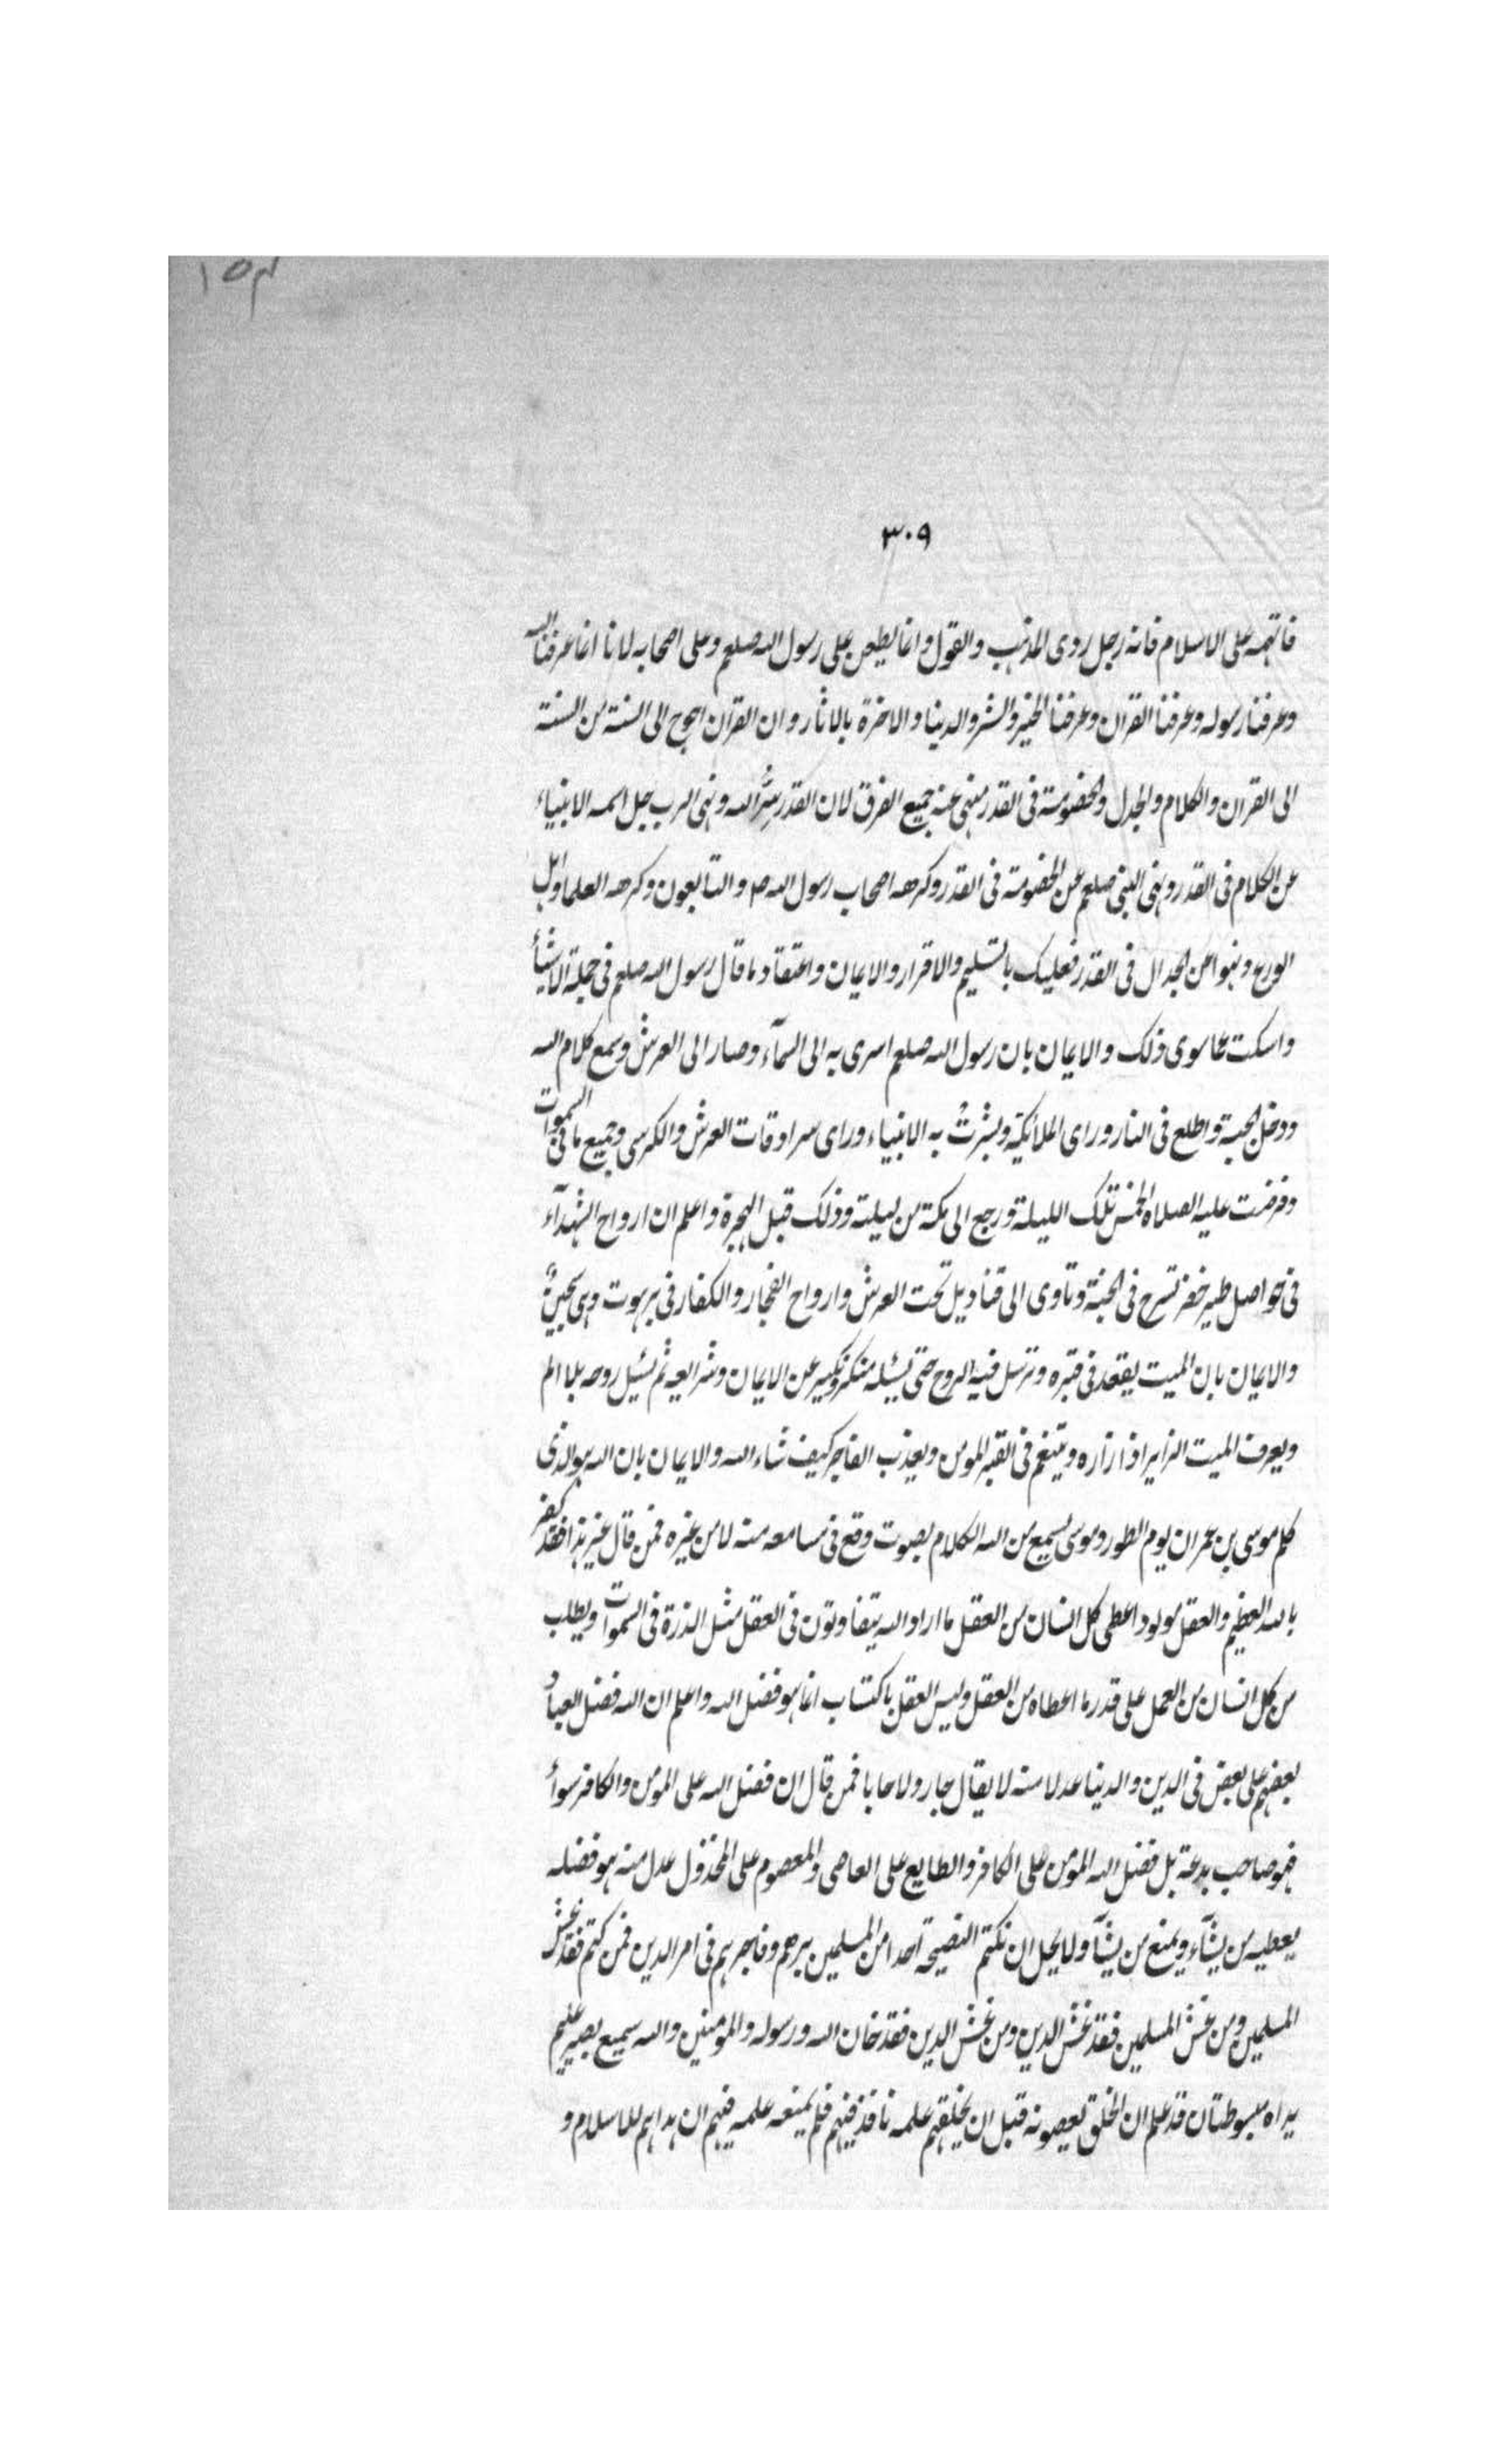 ١٥٣
٣٠٩
فاتهمه على الاسلام فانه رجل ردى المذهب والقول وانما يطعن على رسول الله صلعم وعلى اصحابه لانا انما عرفنا الله
وعرفنا رسوله وعرفنا القران وعرفنا الخير والشر والدنيا والاخرة بالاثار وان القرآن احوج الى السنة من السنة
الى القران والكلام والجدل والخصومة فى القدر منهى عنه جميع الفرق لان القدر سِرُّ الله ونهى الرب جل اسمه الانبياء
عن الكلام فى القدر ونهى النبى صلعم عن الخصومة فى القدر وكرهه اصحاب رسول الله ص والتابعون وكرهه العلما واهل
الورع ونهوا عن الجدال فى القدر فعليك بالتسليم والاقرار والايمان واعتقاد ما قال رسول الله صلعم فى جملة الاشيأ
واسكت عما سوى ذلك والايمان بان رسول الله صلعم اسرى به الى السمآء وصار الى العرش وسمع كلام الله
ودخل الجنة واطلع فى النار وراى الملائكة وبشرت به الانبياء وراى سرادقات العرش والكرسى وجميع ما فى السموات
وفرضت عليه الصلاة الخمس تلك الليلة ورجع الى مكة من ليلته وذلك قبل الهجرة واعلم ان ارواح الشهدآء
فى حواصل طير خضر تسرح فى الجنة وتاوى الى قناديل تحت العرش وارواح الفجار والكفار فى برهوت وهى سجين
والايمان بان الميت يقعد فى قبره وترسل فيه الروح حتى يسئله منكر ونكير عن الايمان وشرايعه ثم تسئل روحه بلا الم
ويعرف الميت الزاير اذا زاره ويتنعم فى القبر المومن ويعذب الفاجر كيف شاء الله والايمان بان الله هو الذى
كلم موسى بن عمران يوم الطور وموسى يسمع من الله الكلام بصوت وقع فى مسامعه منه لا من غيره فمن قال غير هذا فقد كفر
بالله العظيم والعقل مولود اعطى كل انسان من العقل ما اراد الله يتفاوتون فى العقل مثل الذرة فى السموات ويطلب
من كل انسان من العمل على قدر ما اعطاه من العقل وليس العقل باكتساب انما هو فضل الله واعلم ان الله فضل العباد
بعضهم على بعض فى الدين والدينا عدلا منه لا يقال جار ولا حابا فمن قال ان فضل الله على المؤمن والكافر سوأ
فهو صاحب بدعة بل فضل الله المؤمن على الكافر والطايع على العاصى والمعصوم على المخذول عدل منه هو فضله
يعطيه من يشآء ويمنع من يشآ ولا يحل ان تكتم النصيحة احدا من المسلمين برهم وفاجرهم فى امر الدين فمن كتم فقد غش
المسلمين ومن غش المسلمين فقد غش الدين ومن غش الدين فقد خان الله ورسوله والمؤمنين والله سميع بصير عليم
يداه مبسوطتان قد علم ان الخلق يعصونه قبل ان يخلقهم علمه نافذ فيهم فلم يمنعه علمه فيهم ان هداهم للاسلام و